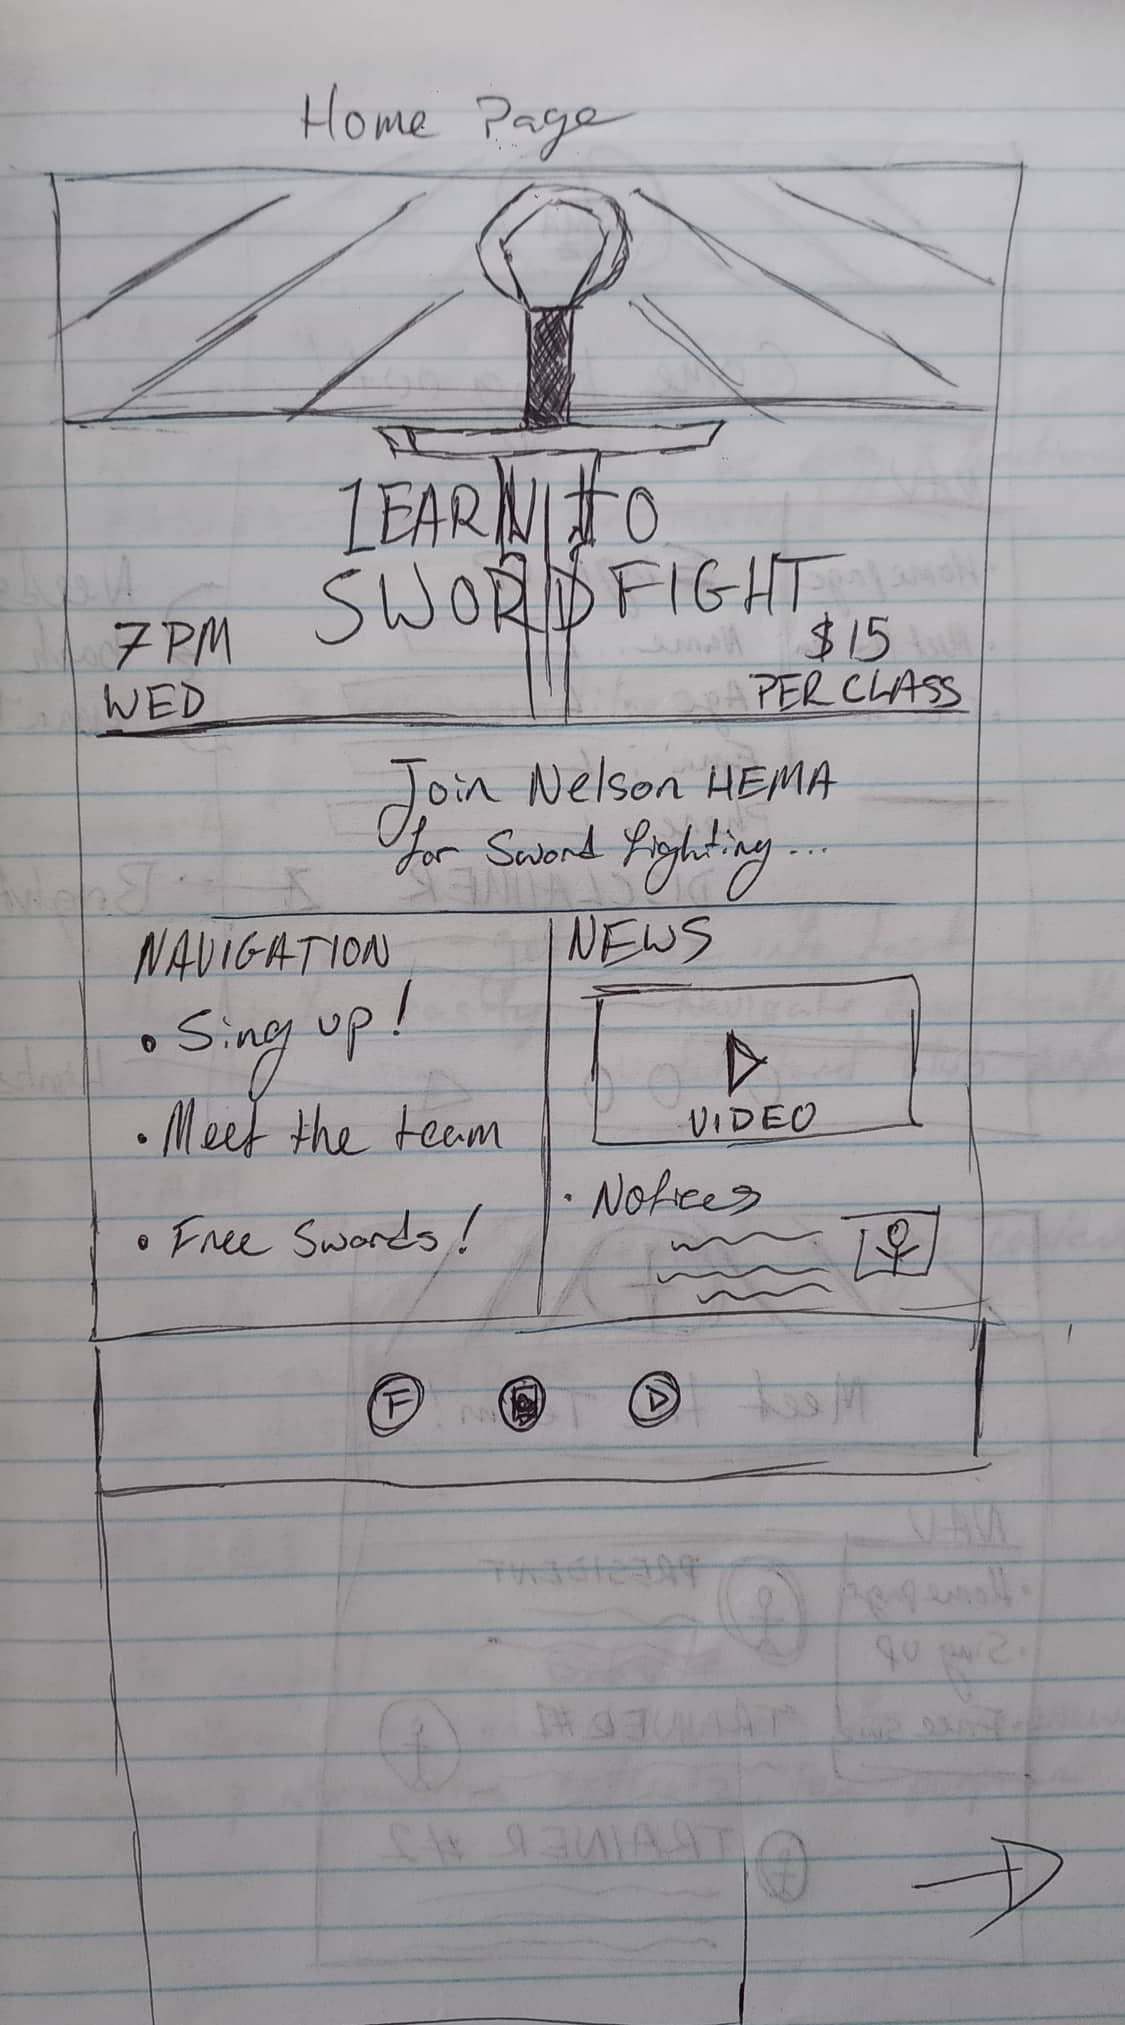 Home Page
LEARN TO
SWORD FIGHT
7 PM
WED
$15
PER CLASS
Join Nelson HEMA
for Sword fighting...
NAVIGATION
• Sing up!
• Meet the team
• Free Swords!
NEWS
VIDEO
• Notices
F